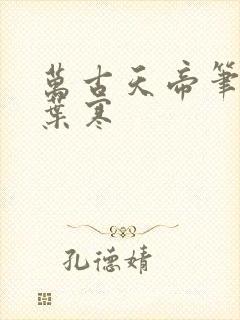 萬古天帝筆
葉寒
孔德婧